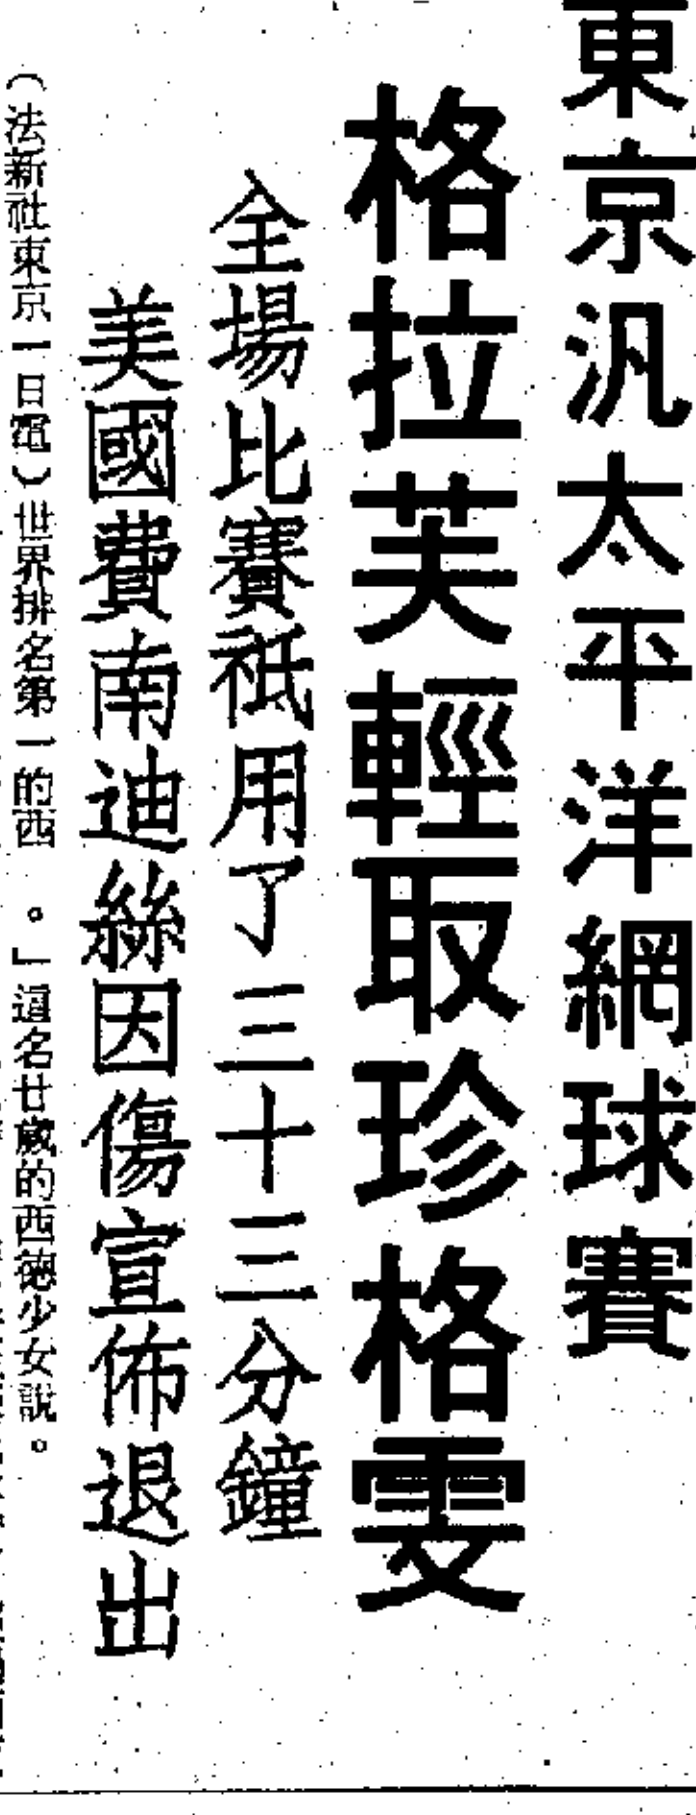 東京汎太平洋網球賽
格拉芙輕取珍格雯
全場比賽祇用了三十三分鐘
美國費南迪絲因傷宣佈退出
（法新社東京一日電）世界排名第一的西
。」這名廿歲的西德少女說。